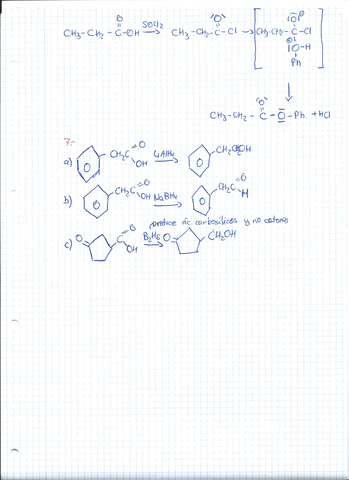 CH₃-CH₂-C(=O)-OH →(SOCl₂) CH₃-CH₂-C(=O)-Cl → [CH₃-CH₂-C-Cl |O|⊖ ⊕|O-H Ph]
↓
CH₃-CH₂-C(=O)-O-Ph + HCl
7.-
a) CH₂C=O OH LiAlH₄ → CH₂CH₂OH
b) CH₂C=O OH NaBH₄ → CH₂C=O H
produce ác. carboxílicos y no cetonas
c) O= C=O OH B₂H₆ → O= CH₂OH